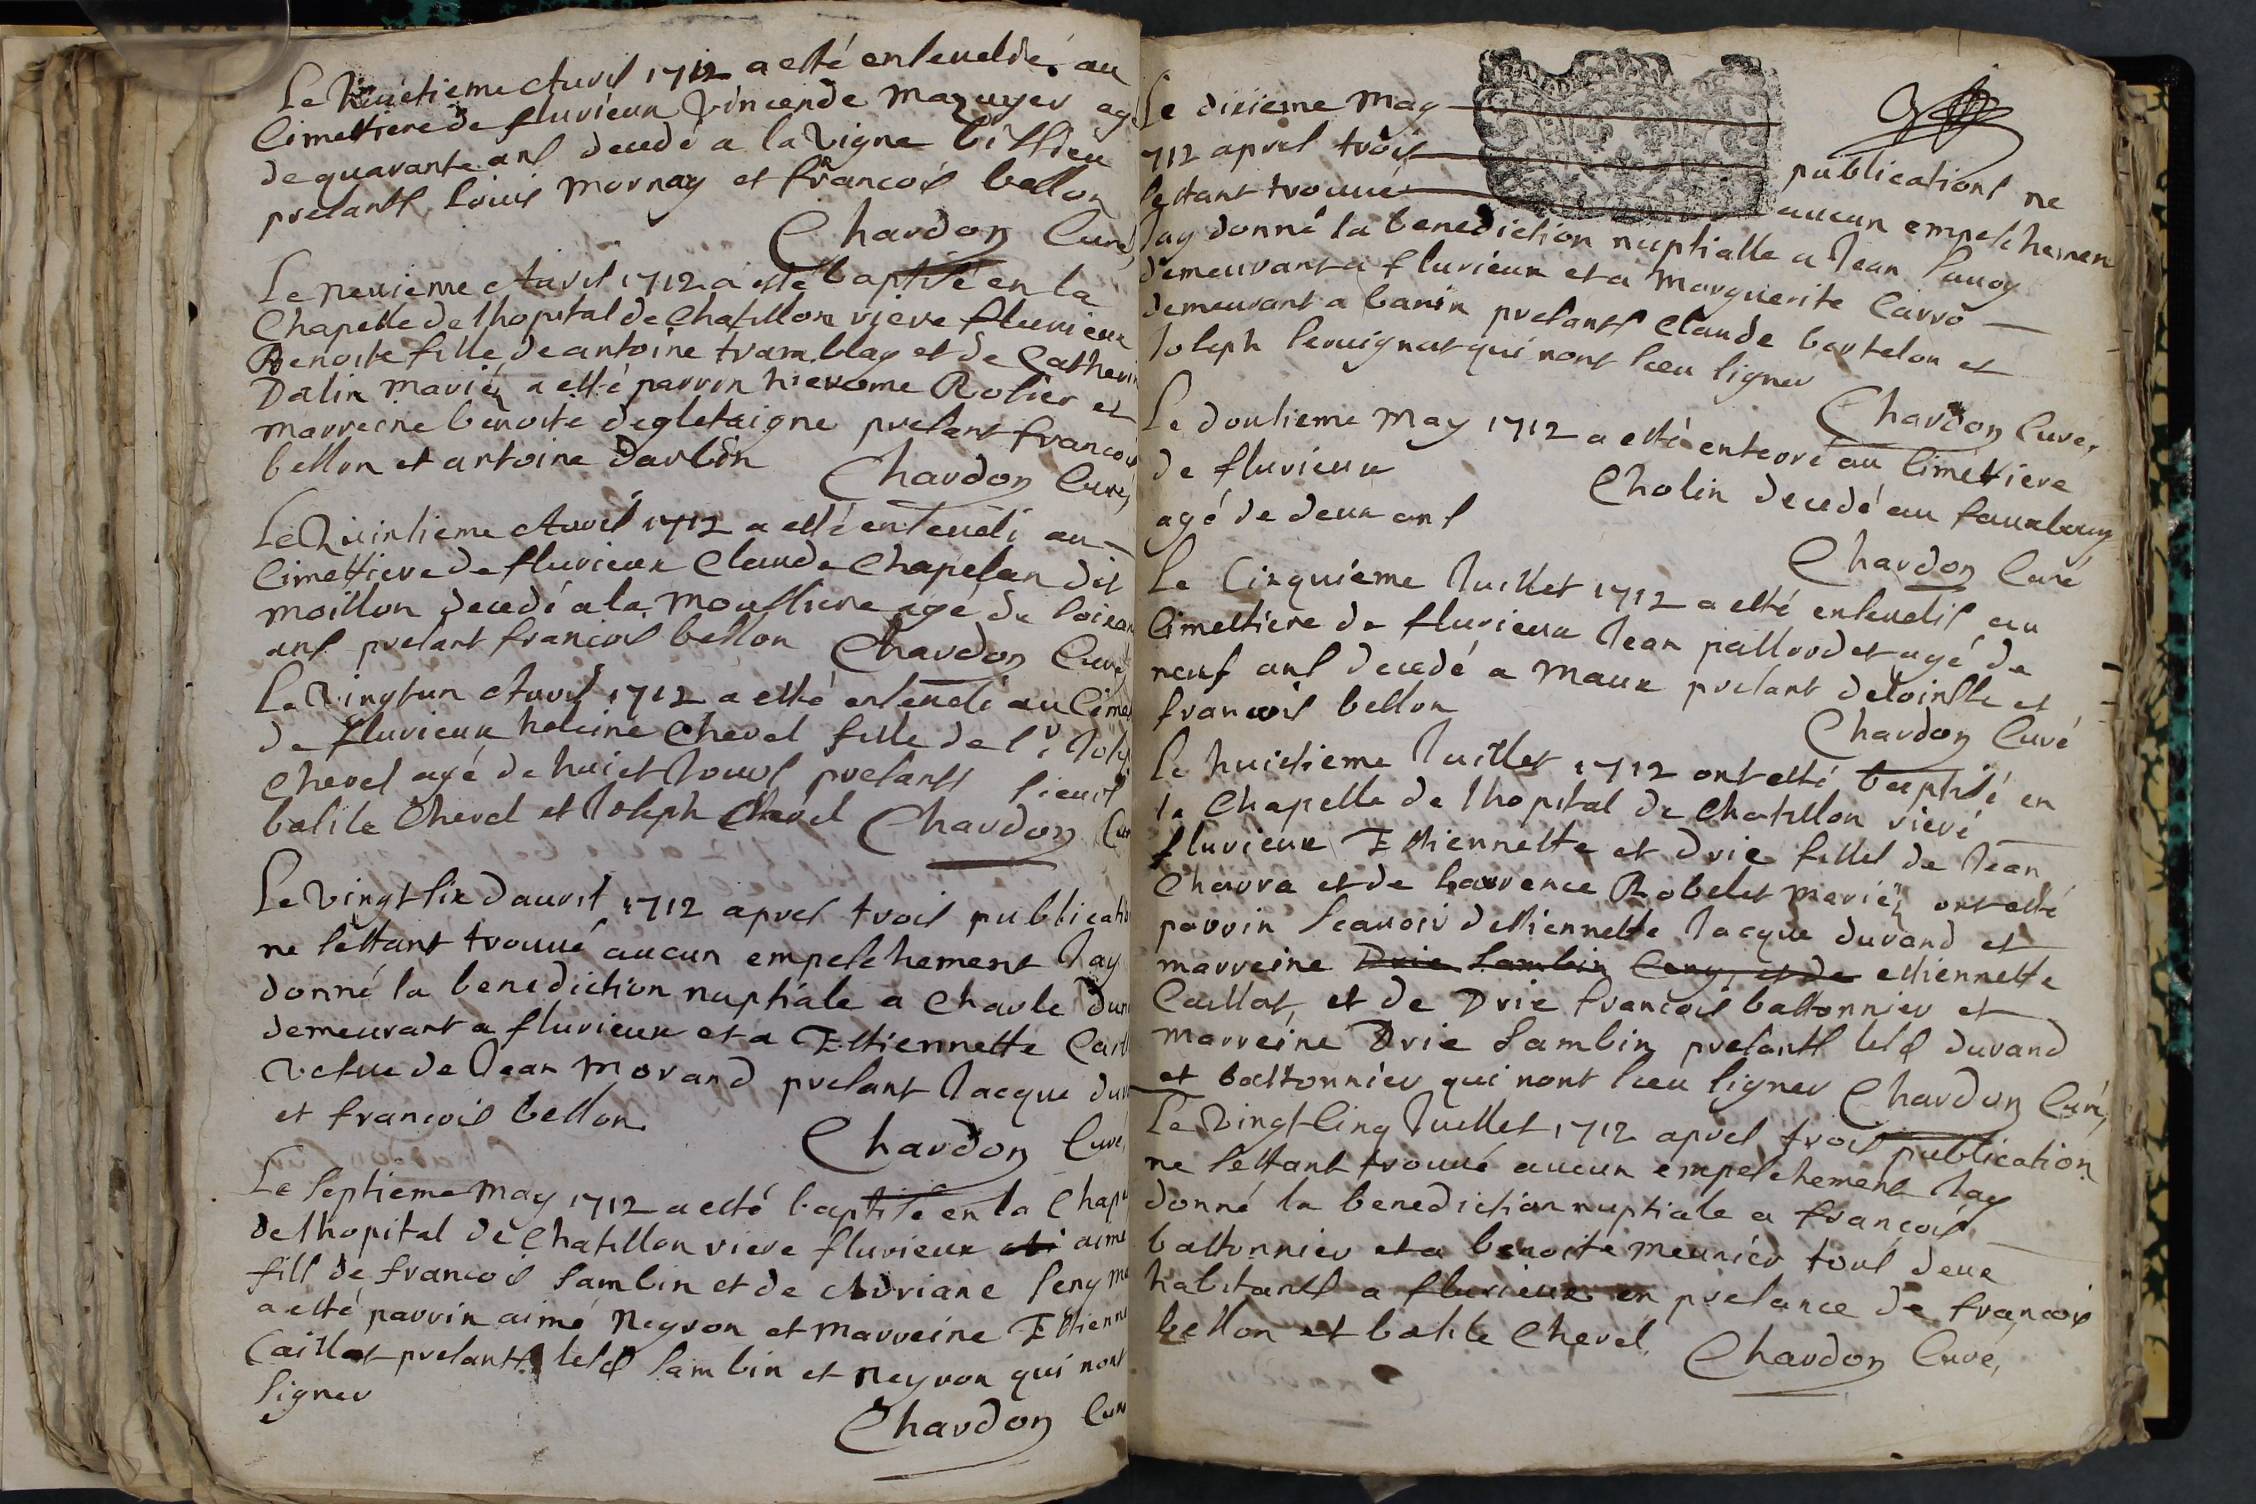 Le huictieme Avril 1712 a esté enseveldé au
Cimettiere de fluvieux vincende mazuyer ag
de quarante ans decedé a la vigne
presants louis mornay et francois bellon
Chardon Curé
Le nevieme Avril 1712 a esté baptisé en la
Chapelle de lhopital de Chatillon vieve fluvieux
Benoite fille de antoine tramblay et de Catherin
Dalin mariéz a esté parrin hierome Rolier et
marreine benoite degletaigne presant francois
bellon et antoine Darlin
Chardon Curé
Le Quinsieme Avril 1712 a esté enseveli au
Cimettiere de fluvieux Claude Chapelan dit
moillon decedé a la moussiere agé de soixan
ans presant francois bellon Chardon Curé
Le vingt un Avril 1712 a esté enseveli au Cime
de fluvieux heleine Chevel fille de Sr. Jose
Chevel agé de huict Jours presants sieurs
basile Chevel et Joseph Chevel Chardon Cur
Le vingt six davril 1712 apres trois publicati
ne sestant trouvé aucun empeschement Jay
donné la benediction nuptiale a Charle dur
demeurant a fluvieux et a Estiennette Caill
vefue de Jean morand presant Jacque dur
et francois bellon
Chardon Curé
Le septieme may 1712 a esté baptisé en la Chape
de lhopital de Chatillon vieve fluvieux aimé
fils de francois sambin et de Adriane seny ma
a esté parrin aimé Neyron et marreine Estienne
Caillat presants lesd sambin et neyron qui nont
signer
Chardon Cur
Le dixieme may
1712 apres trois publications ne
sestant trouvé aucun empeschemen
Jay donné la benediction nuptialle a Jean
demeurant a fluvieux et a marguerite Carro
demeurant a banin presants Claude bertelon et
Joseph seruignat qui nont sceu signer
Chardon Curé
Le dousieme may 1712 a esté enterré au Cimettiere
de fluvieux Cholin decedé au fauxbourg
agé de deux ans
Chardon Curé
Le Cinquieme Juillet 1712 a esté ensevelis au
Cimettiere de fluvieux Jean paillordet agé de
neuf ans decedé a maux presant detoinste et
francois bellon
Chardon Curé
Le huictieme Juillet 1712 ont esté baptisé en
la Chapelle de lhopital de Chatillon vievé
fluvieux Estiennette et Drie filles de Jean
Charra et de Laurence Robelet mariéz ont esté
parrin scavoir destiennette Jacque durand et
marreine Drie Sambin Ceny et de estiennette
Caillat, et de Drie francois bastonnier et
marreine Drie Sambin presants lesd durand
et bastonnier qui nont sceu signer Chardon Curé
Le vingt cinq Juillet 1712 apres trois publication
ne sestant trouvé aucun empeschement Jay
donné la benediction nuptiale a francois
bastonnier et a benoite meunier tous deux
habitants a fluvieux en presance de francois
bellon et basile Chevel. Chardon Curé